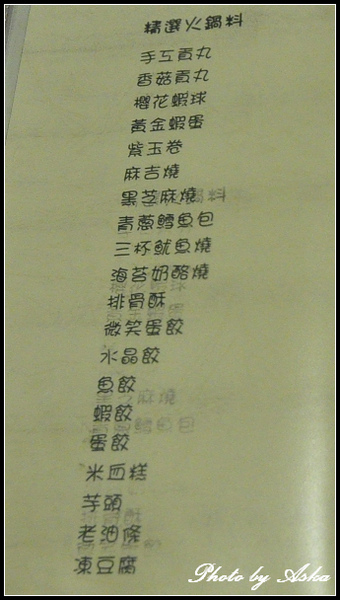 精選火鍋料
手工貢丸
香菇貢丸
櫻花蝦球
黃金蝦蛋
紫玉卷
麻吉燒
黑芝麻燒
青蔥鱈魚包
三杯魷魚燒
海苔奶酪燒
排骨酥
微笑蛋餃
水晶餃
魚餃
蝦餃
蛋餃
米血糕
芋頭
老油條
凍豆腐
Photo by Aska